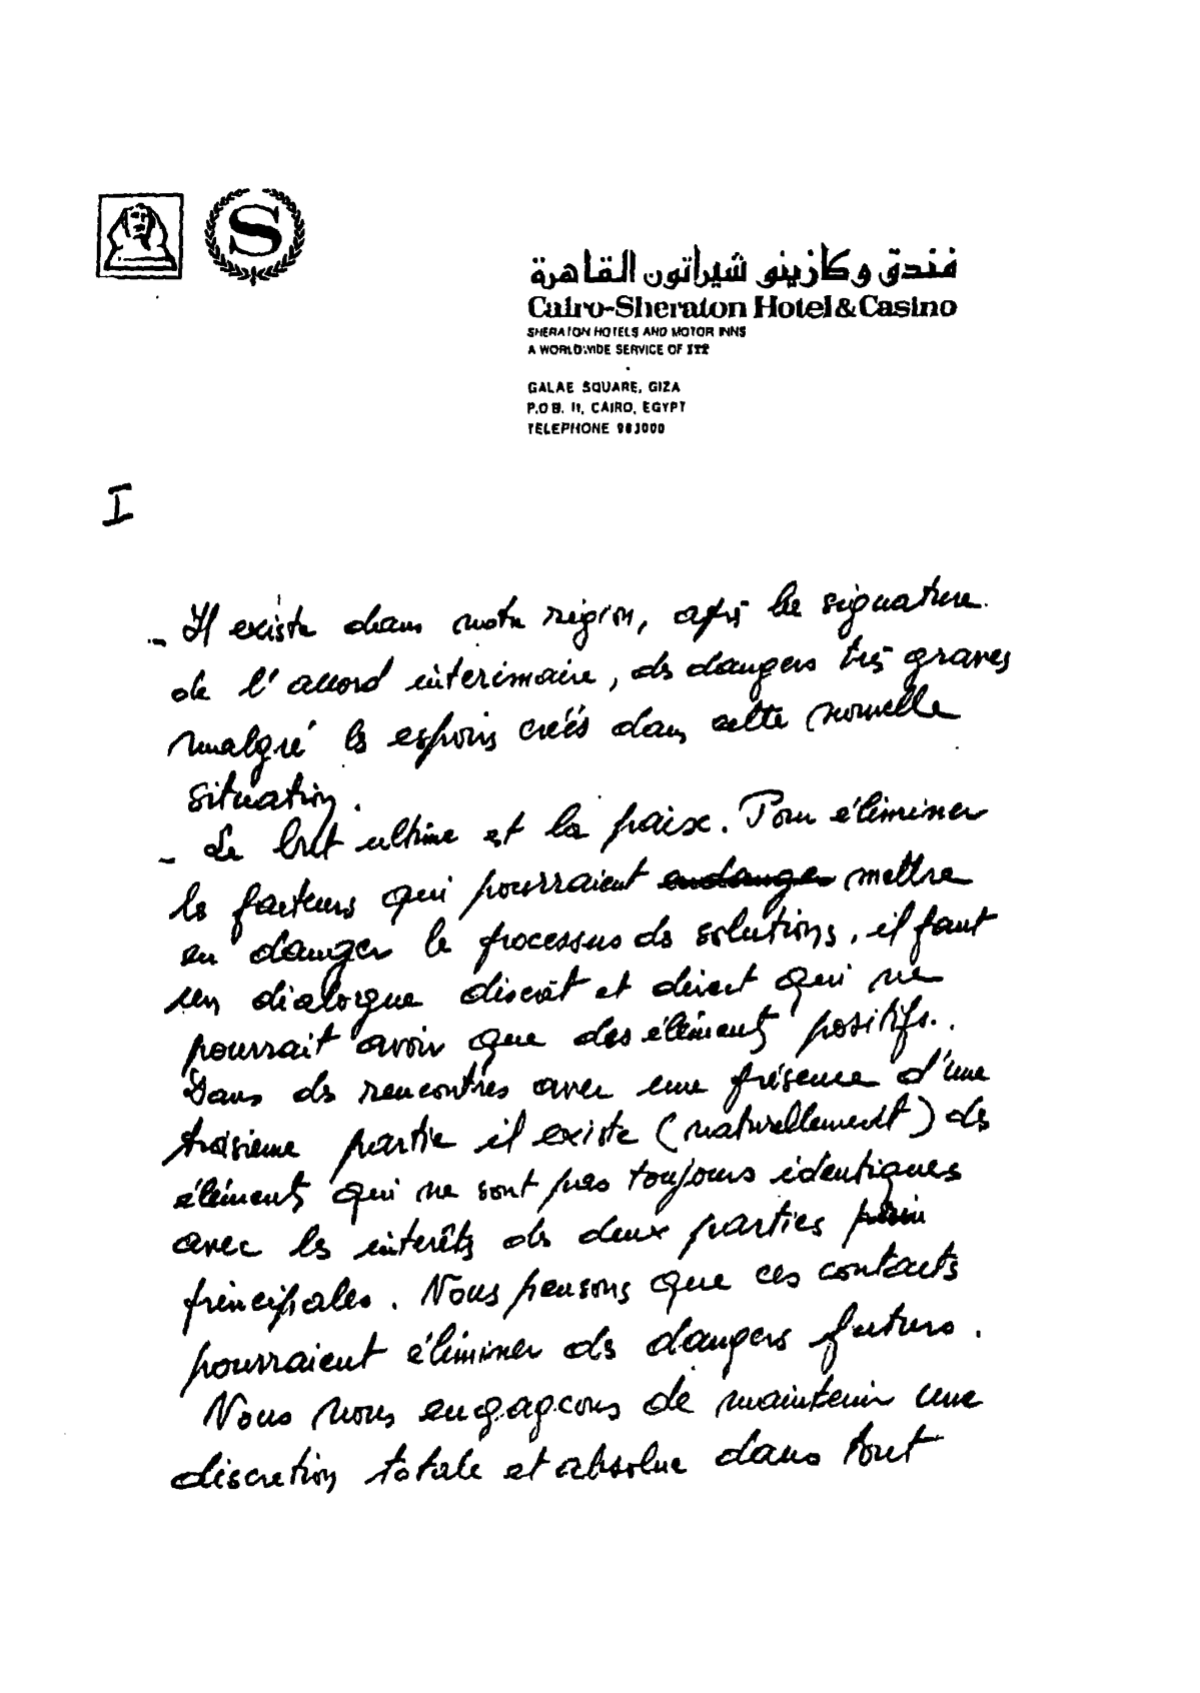 S
فندق وكازينو شيراتون القاهرة
Cairo-Sheraton Hotel & Casino
SHERATON HOTELS AND MOTOR INNS
A WORLDWIDE SERVICE OF ITT
GALAE SQUARE, GIZA
P.O B. 11, CAIRO, EGYPT
TELEPHONE 983000
I
- Il existe dans notre région, après la signature
de l'accord intérimaire, des dangers très graves
malgré les espoirs créés dans cette nouvelle
situation.
- Le but ultime est la paix. Pour éliminer
les facteurs qui pourraient endanger mettre
en danger le processus des solutions, il faut
un dialogue discret et direct qui ne
pourrait avoir que des éléments positifs.
Dans des rencontres avec une présence d'une
troisième partie il existe (naturellement) des
éléments qui ne sont pas toujours identiques
avec les interêts des deux parties
principales. Nous pensons que ces contacts
pourraient éliminer des dangers futurs.
Nous nous engageons de maintenir une
discretion totale et absolue dans tout